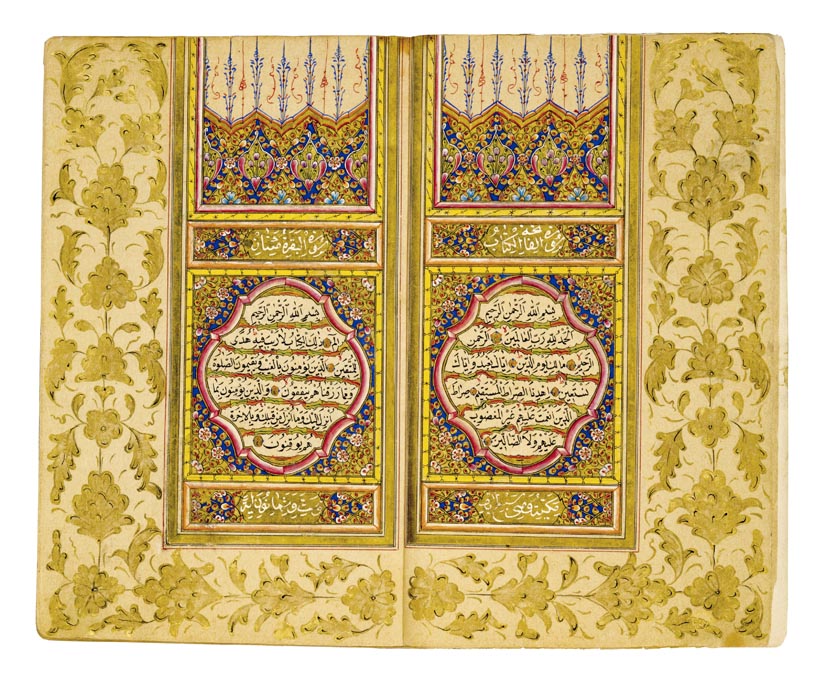 سورة الفاتحة الكتاب
بِسْمِ اللهِ الرَّحْمٰنِ الرَّحِيمِ
اَلْحَمْدُ لِلّٰهِ رَبِّ الْعَالَمِينَ الرَّحْمٰنِ
الرَّحِيمِ مَالِكِ يَوْمِ الدِّينِ اِيَّاكَ نَعْبُدُ وَاِيَّاكَ
نَسْتَعِينُ اِهْدِنَا الصِّرَاطَ الْمُسْتَقِيمَ صِرَاطَ
الَّذِينَ اَنْعَمْتَ عَلَيْهِمْ غَيْرِ الْمَغْضُوبِ
عَلَيْهِمْ وَلَا الضَّالِّينَ
مكية وهي سبع
سورة البقرة مئتان
بِسْمِ اللهِ الرَّحْمٰنِ الرَّحِيمِ
الم ذٰلِكَ الْكِتَابُ لَا رَيْبَ فِيهِ هُدًى
لِلْمُتَّقِينَ الَّذِينَ يُؤْمِنُونَ بِالْغَيْبِ وَيُقِيمُونَ الصَّلٰوةَ
وَمِمَّا رَزَقْنَاهُمْ يُنْفِقُونَ وَالَّذِينَ يُؤْمِنُونَ بِمَا
اُنْزِلَ اِلَيْكَ وَمَا اُنْزِلَ مِنْ قَبْلِكَ وَبِالْاٰخِرَةِ
هُمْ يُوقِنُونَ
وست وثمانون آية